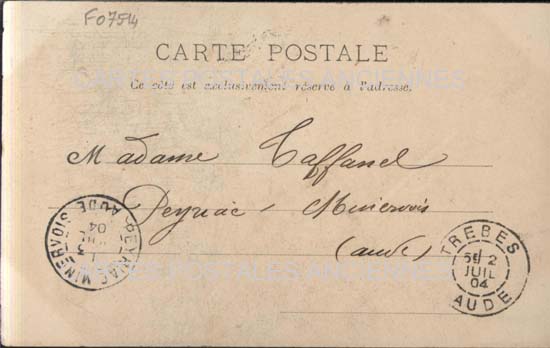 F07514
CARTE POSTALE
Ce côté est exclusivement réservé à l'adresse.
CARTES POSTALES ANCIENNES
Madame Taffanel
Peyriac-Minervois
(aude)
PEYRIAC-MINERVOIS
AUDE
04
TREBES
5E/2
JUIL
04
AUDE
CARTES POSTALES ANCIENNES